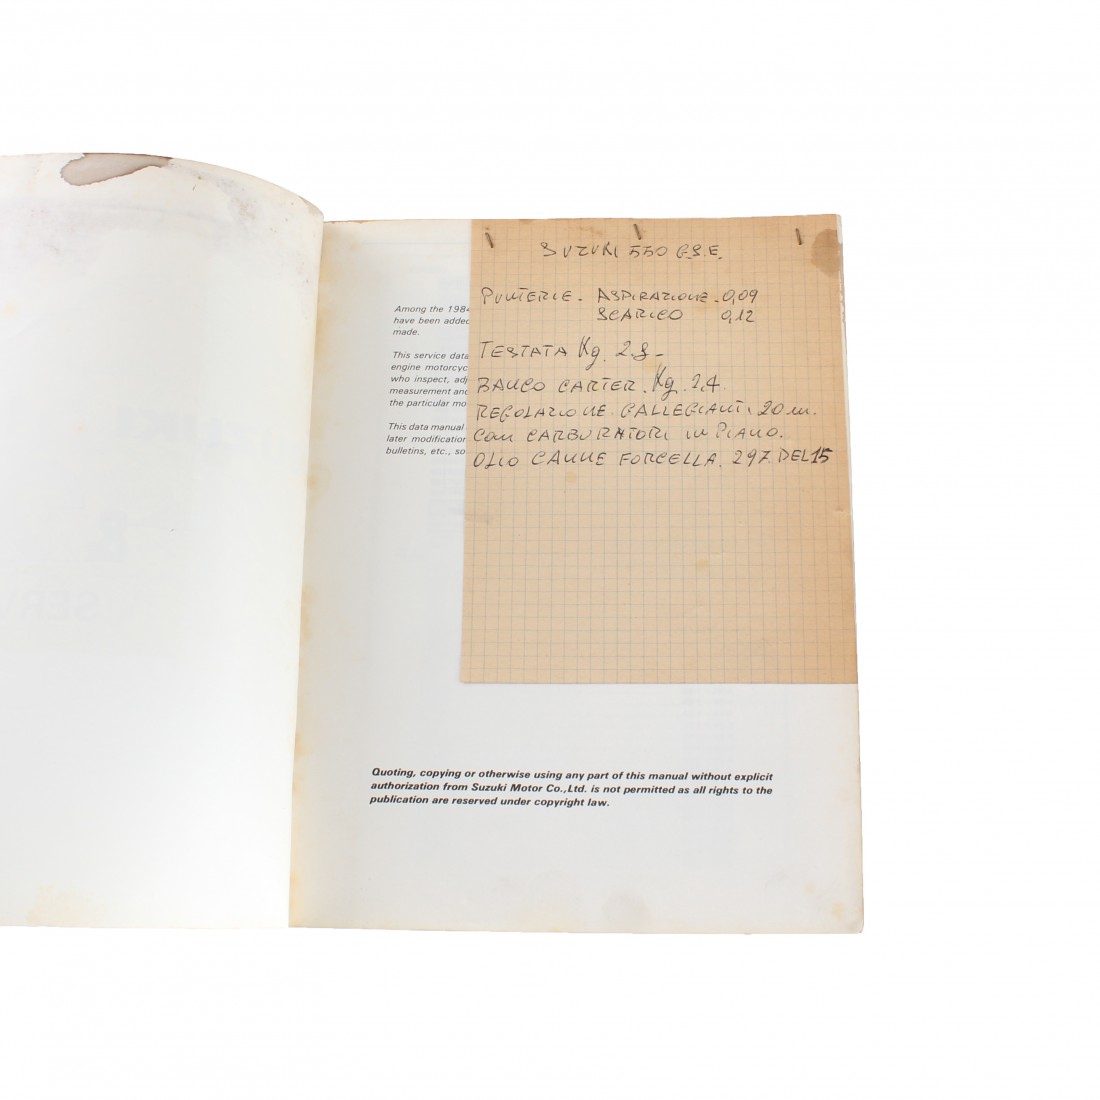 SUZUKI 550 G.S.E.
PUNTERIE - ASPIRAZIONE - 0,09
SCARICO 0,12
TESTATA Kg. 2.8 -
BANCO CARTER. Kg. 2,4.
REGOLAZIONE. GALLEGIANTI. 20 m.
CON CARBURATORI IN PIANO.
OLIO CANNE FORCELLA. 297. DEL 15
Among the 1984
have been added
made.
This service data
engine motorcyc
who inspect, adj
measurement and
the particular mo
This data manual
later modification
bulletins, etc., so
Quoting, copying or otherwise using any part of this manual without explicit
authorization from Suzuki Motor Co.,Ltd. is not permitted as all rights to the
publication are reserved under copyright law.